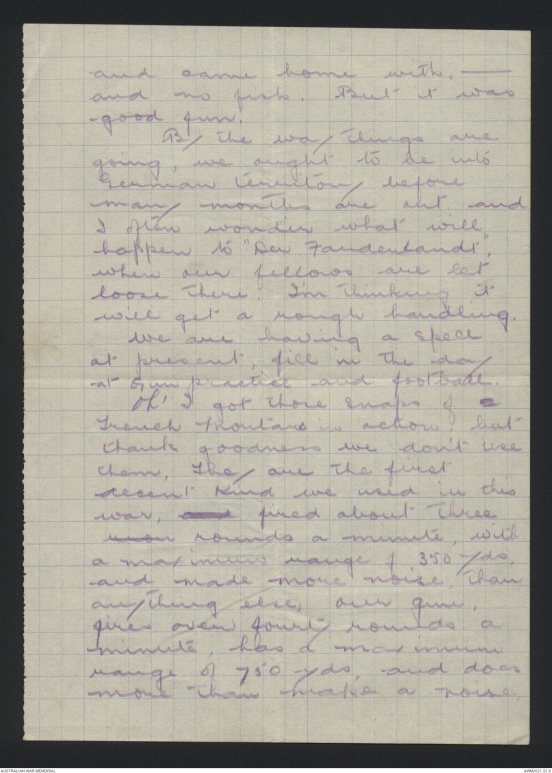 and came home with. —
and no fish. But it was
good fun.
By the way things are
going, we ought to be into
German territory before
many months are out. and
I often wonder what will
happen to "Der Fanderlandt",
when our fellows are let
loose there. I'm thinking it
will get a rough handling.
We are having a spell
at present, fill in the day
at gun practice and football.
Oh! I got those snaps of
Trench Mortars in action, but
thank goodness we don't use
them, They are the first
decent kind we used in this
war, fired about three
rounds a minute, with
a maximum range of 350 yds,
and made more noise, than
anything else, our gun,
fires over fourty rounds a
minute, has a maximum
range of 750 yds, and does
more than make a noise.
AUSTRALIAN WAR MEMORIAL